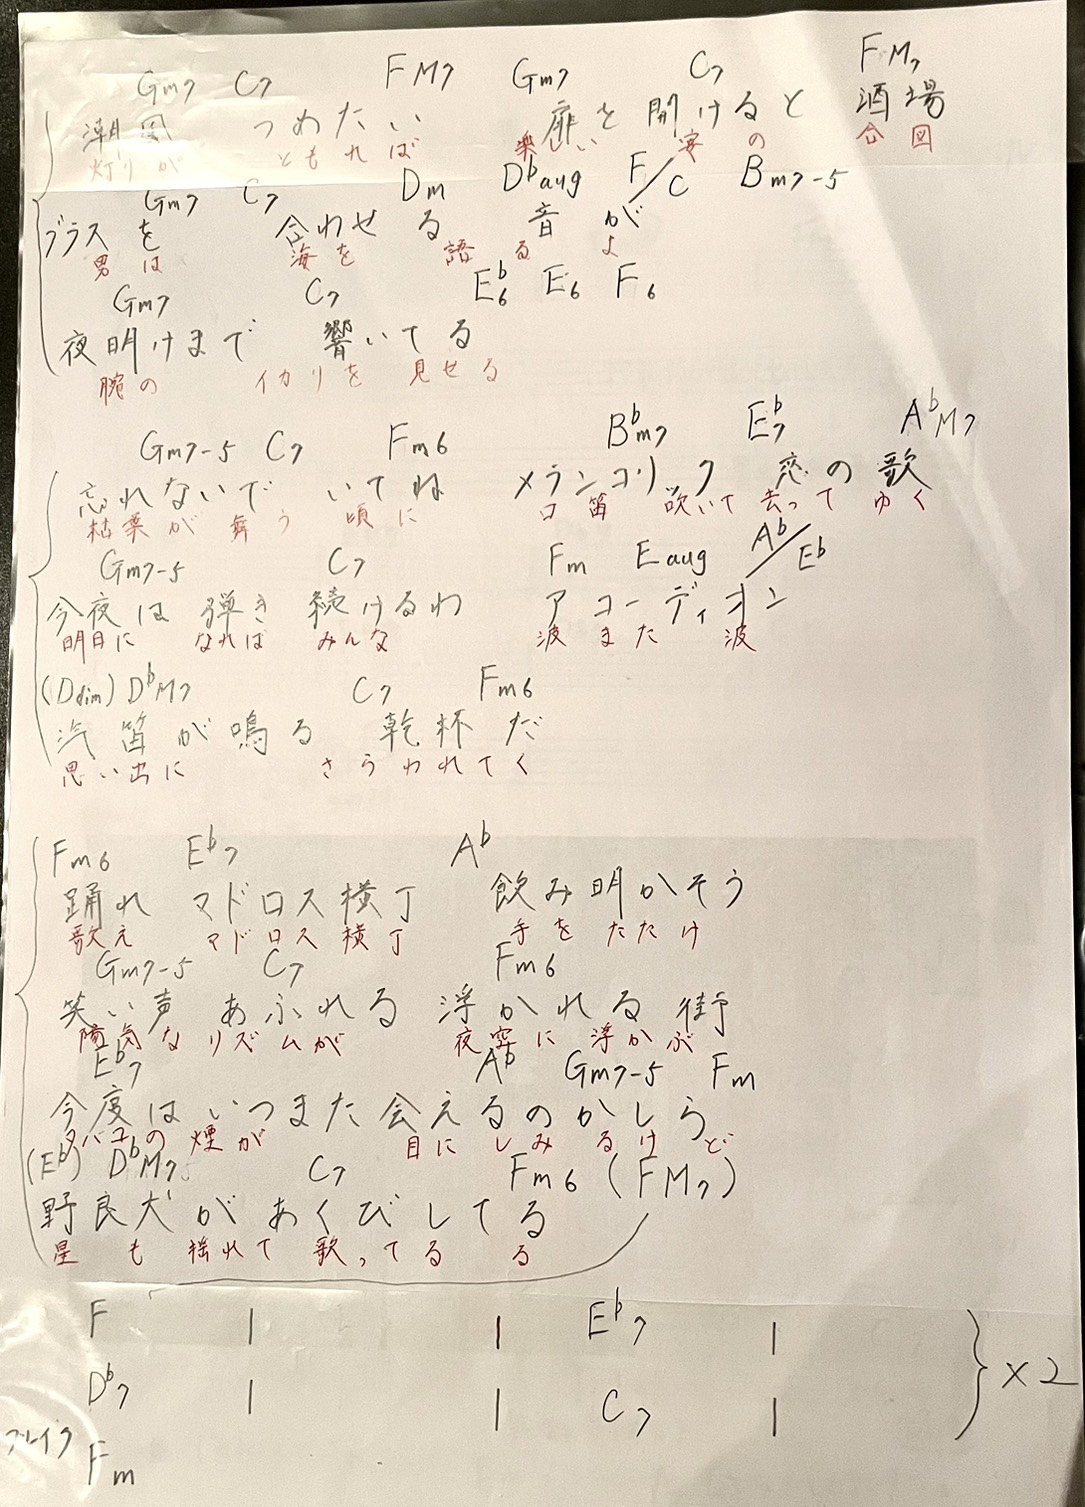 Gm7 C7 FM7 Gm7 C7 FM7
潮風 つめたい 扉を開けると 酒場
灯りが ともれば 楽しい 宴の 合図
Gm7 C7 Dm D♭aug F/C Bm7-5
グラスを 合わせる 音が
男は 海を 語る よ
Gm7 C7 E♭6 E6 F6
夜明けまで 響いてる
腕の イカリを 見せる
Gm7-5 C7 Fm6 B♭m7 E♭7 A♭M7
忘れないで いてね メランコリック 恋の歌
枯葉が 舞う 頃に 口笛 吹いて 去って ゆく
Gm7-5 C7 Fm Eaug A♭/E♭
今夜は 弾き 続けるわ アコーディオン
明日に なれば みんな 波 また 波
(Ddim) D♭M7 C7 Fm6
汽笛が鳴る 乾杯だ
思い出に さらわれてく
Fm6 E♭7 A♭
踊れ マドロス横丁 飲み明かそう
歌え マドロス横丁 手を たたけ
Gm7-5 C7 Fm6
笑い声 あふれる 浮かれる 街
陽気な リズムが 夜空に 浮かぶ
E♭7 A♭ Gm7-5 Fm
今度は いつまた 会えるのかしら
タバコの 煙が 目に しみるけど
(E♭) D♭M7 C7 Fm6 (FM7)
野良犬が あくびしてる
星も 揺れて 歌ってる る
F | | E♭7 |
D♭7 | | C7 | } ×2
ブレイク
Fm